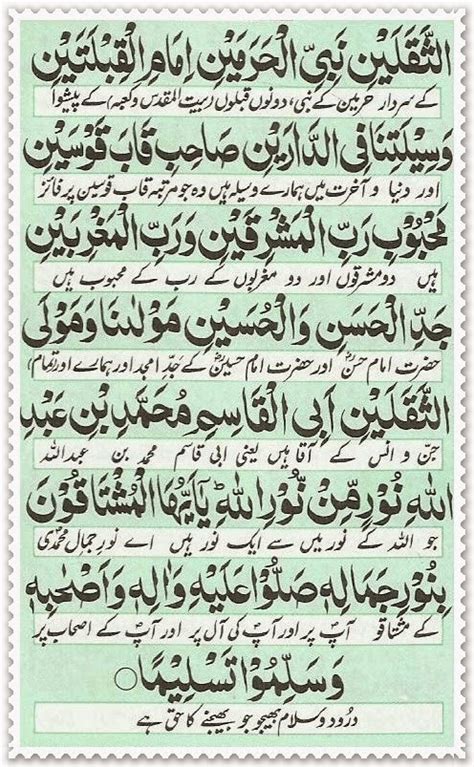 الثَّقَلَيْنِ نَبِيِّ الْحَرَمَيْنِ اِمَامِ الْقِبْلَتَيْنِ
کے سردار حرمین کے نبی، دونوں قبلوں (بیت المقدس و کعبہ) کے پیشوا
وَسِيْلَتِنَا فِي الدَّارَيْنِ صَاحِبِ قَابَ قَوْسَيْنِ
اور دنیا و آخرت میں ہمارے وسیلہ ہیں وہ جو مرتبہ قاب قوسین پر فائز
مَحْبُوْبِ رَبِّ الْمَشْرِقَيْنِ وَرَبِّ الْمَغْرِبَيْنِ
ہیں دو مشرقوں اور دو مغربوں کے رب کے محبوب ہیں
جَدِّ الْحَسَنِ وَالْحُسَيْنِ مَوْلٰىنَا وَمَوْلَى
حضرت امام حسنؓ اور حضرت امام حسینؓ کے جدِّ امجد اور ہمارے اور (تمام)
الثَّقَلَيْنِ اَبِي الْقَاسِمِ مُحَمَّدِ بْنِ عَبْدِ
جن و انس کے آقا ہیں یعنی ابی قاسم محمد بن عبداللہ
اللهِ نُوْرٍ مِّنْ نُّوْرِ اللهِ ؕ يٰاَيُّهَا الْمُشْتَاقُوْنَ
جو اللہ کے نور میں سے ایک نور ہیں اے نورِ جمالِ محمدی
بِنُوْرِ جَمَالِهٖ صَلُّوْا عَلَيْهِ وَاٰلِهٖ وَاَصْحٰبِهٖ
کے مشتاقو آپؐ پر اور آپؐ کی آل پر اور آپؐ کے اصحاب پر
وَسَلِّمُوْا تَسْلِيْمًا ○
درود و سلام بھیجو جو بھیجنے کا حق ہے